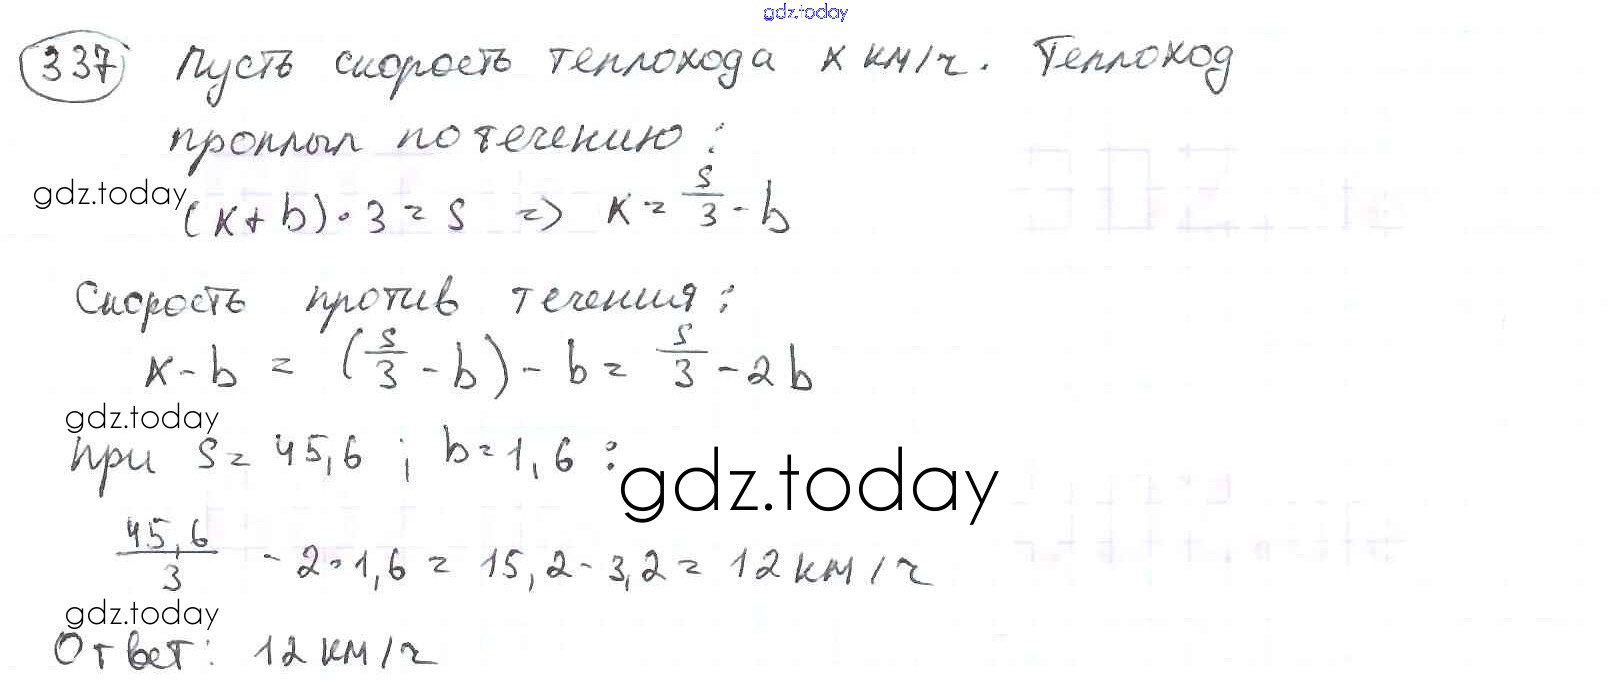 gdz.today
337 Пусть скорость теплохода x км/ч. Теплоход
проплыл по течению:
gdz.today
(x+b)·3=s => x=s/3-b
Скорость против течения:
x-b = (s/3-b)-b= s/3-2b
gdz.today
При s=45,6; b=1,6:
gdz.today
45,6/3 -2·1,6=15,2-3,2=12км/ч
gdz.today
Ответ: 12км/ч